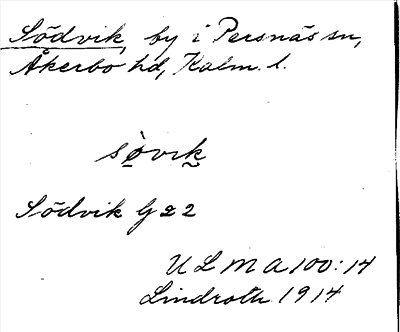 Södvik, by i Persnäs sn,
Åkerbo hd, Kalm. l.
sòvik
Södvik G 22
ULMA 100:14
Lindroth 1914